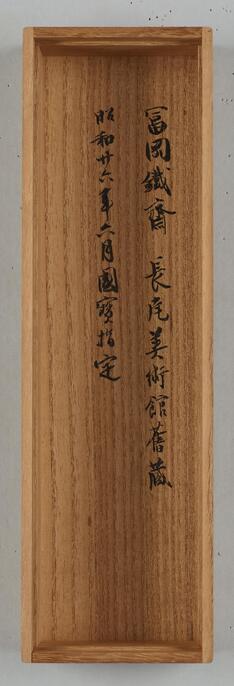 冨岡鐵齋 長尾美術館舊蔵
昭和廿六年六月國寳指定